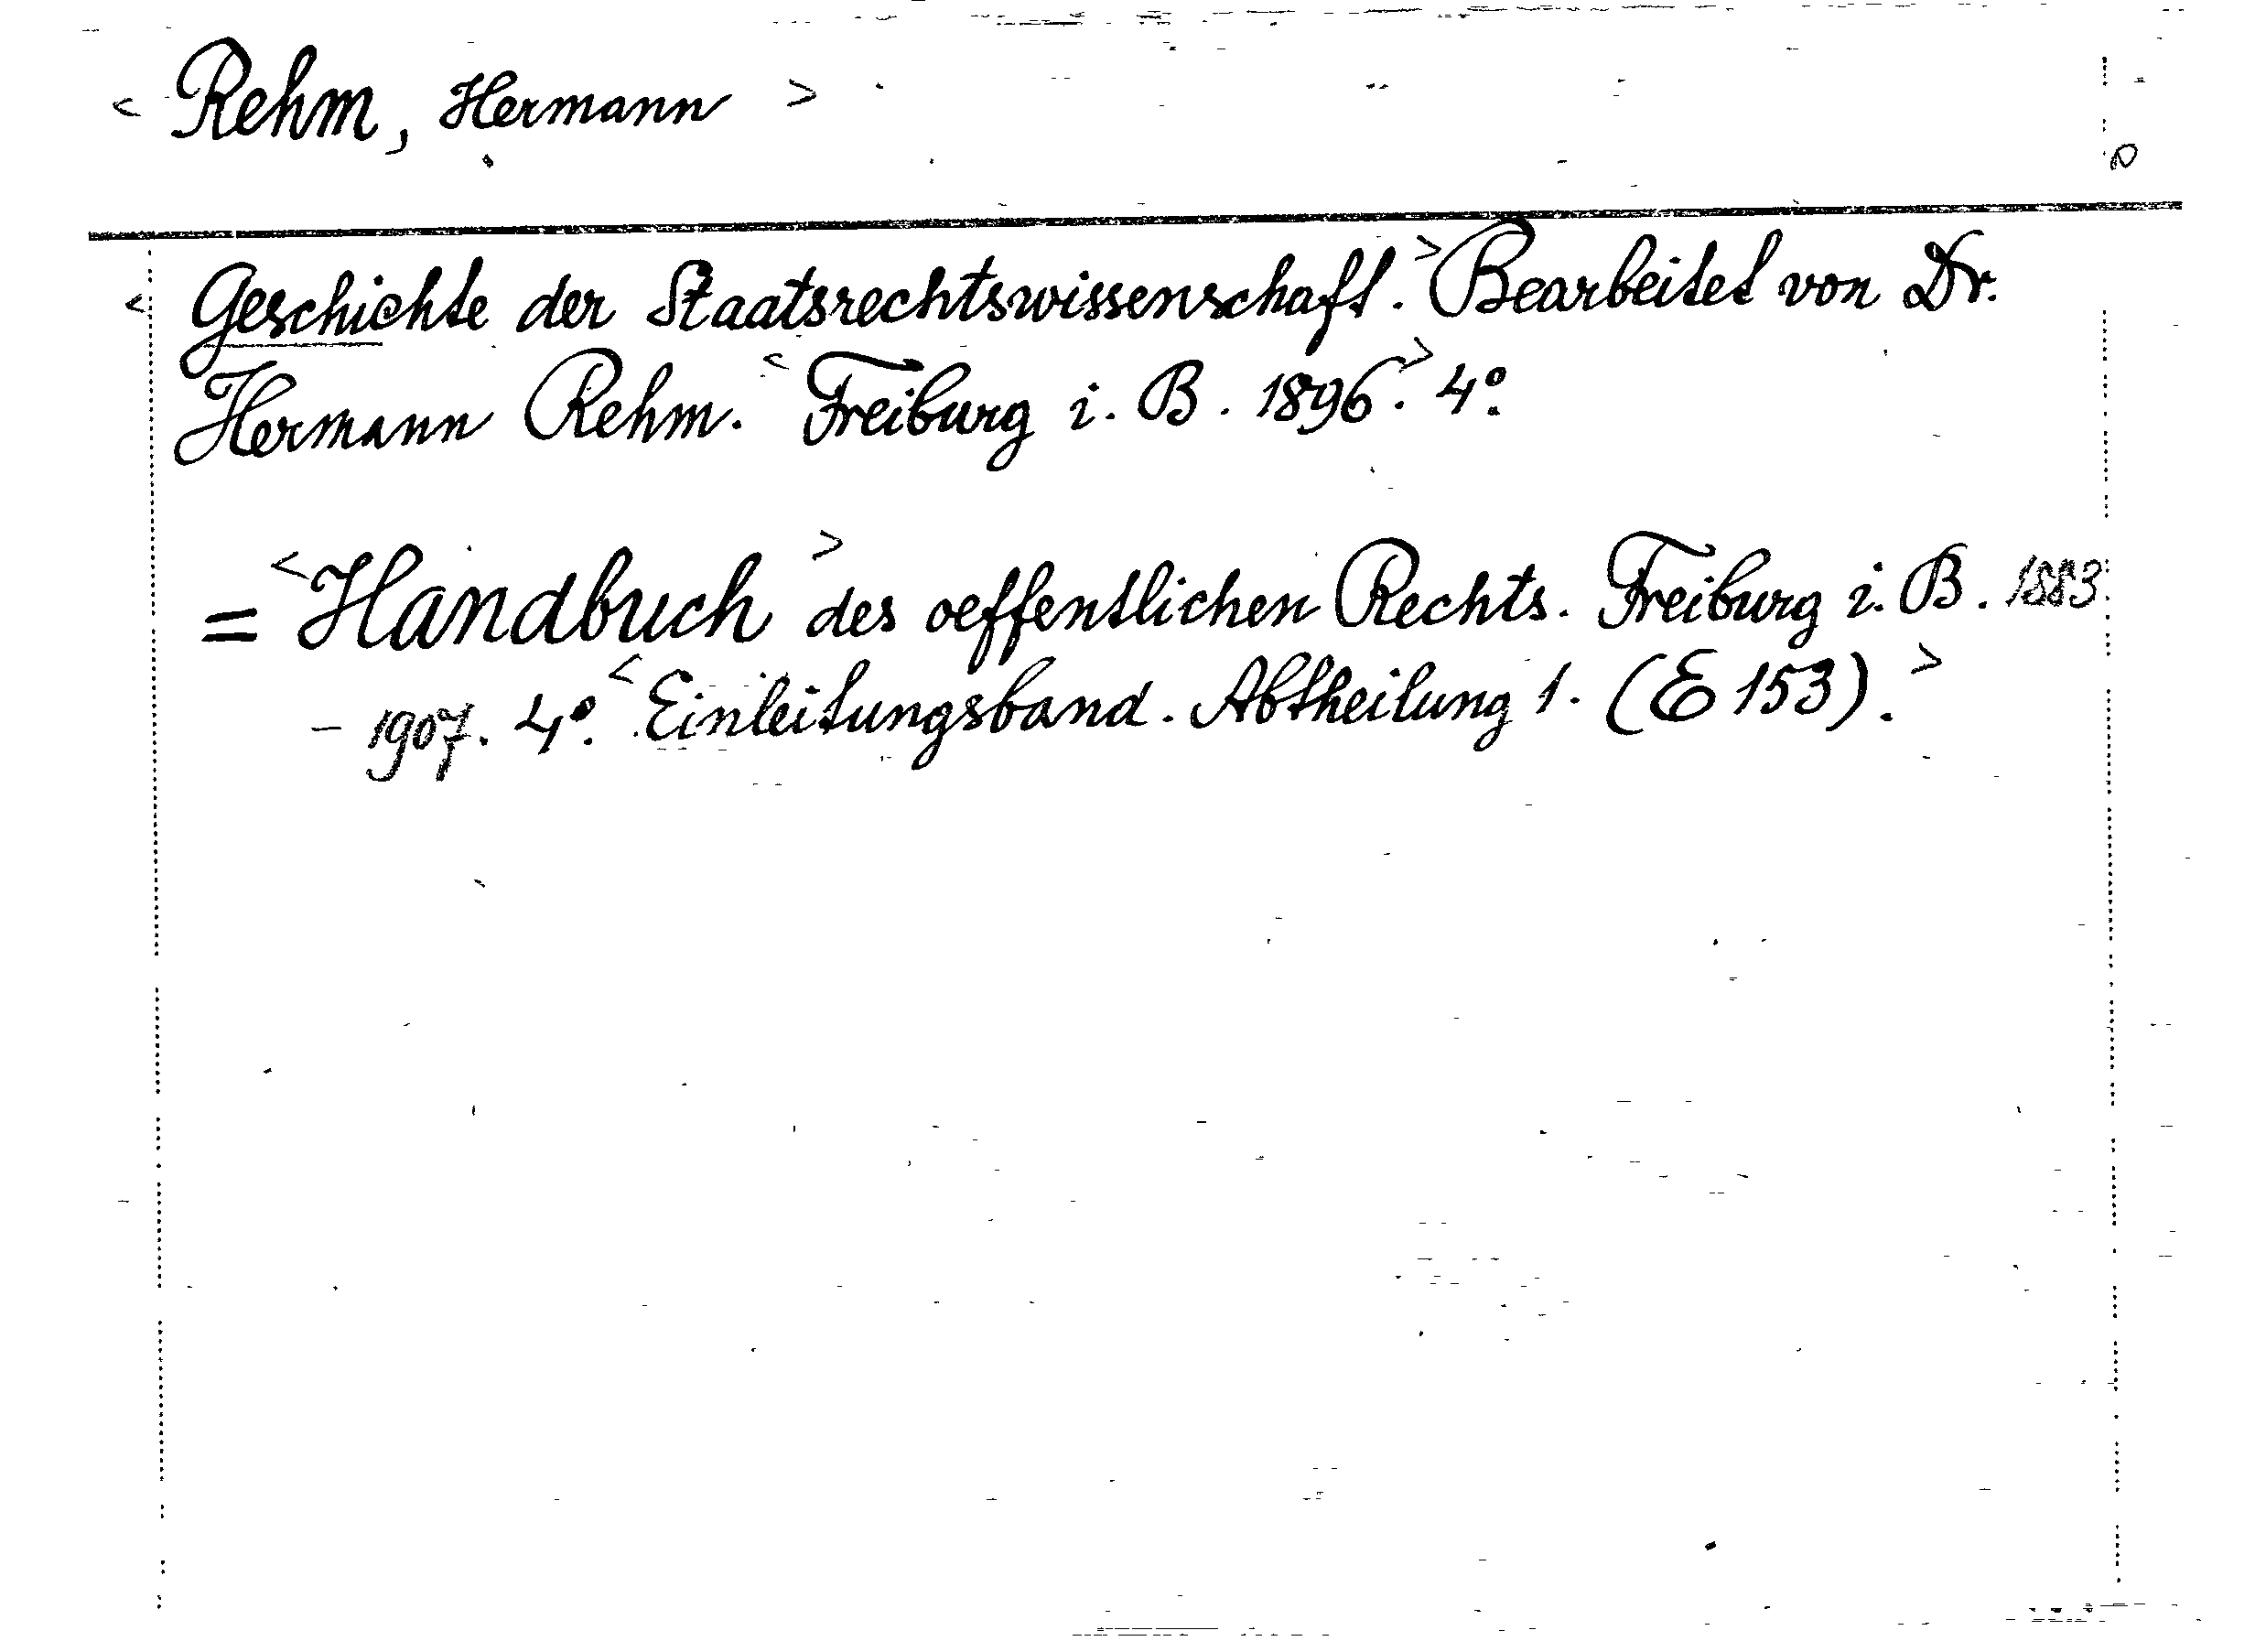 < Rehm, Hermann >
< Geschichte der Staatsrechtswissenschaft. > Bearbeitet von Dr.
Hermann Rehm. < Freiburg i. B. 1896. > 4º.
= < Handbuch > des oeffentlichen Rechts. Freiburg i. B. 1883
- 1907. 4º. < Einleitungsband. Abtheilung 1. (E 153). >